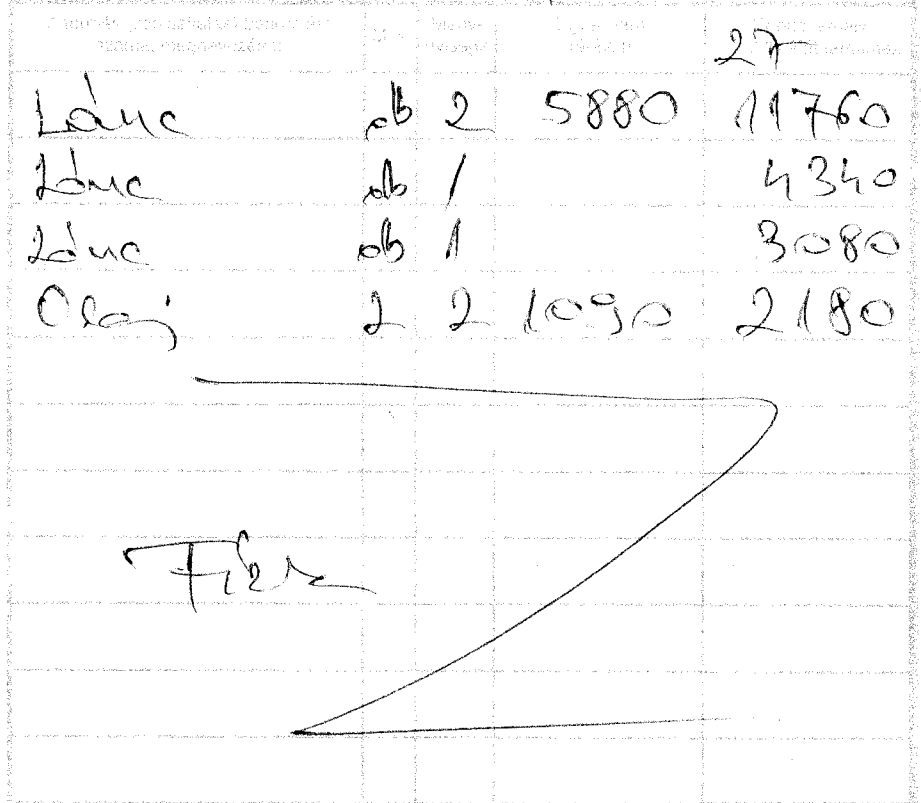 27
Lánc db 2 5880 11760
Lánc db 1 4340
Lánc db 1 3080
Olaj 2 2 1090 2180